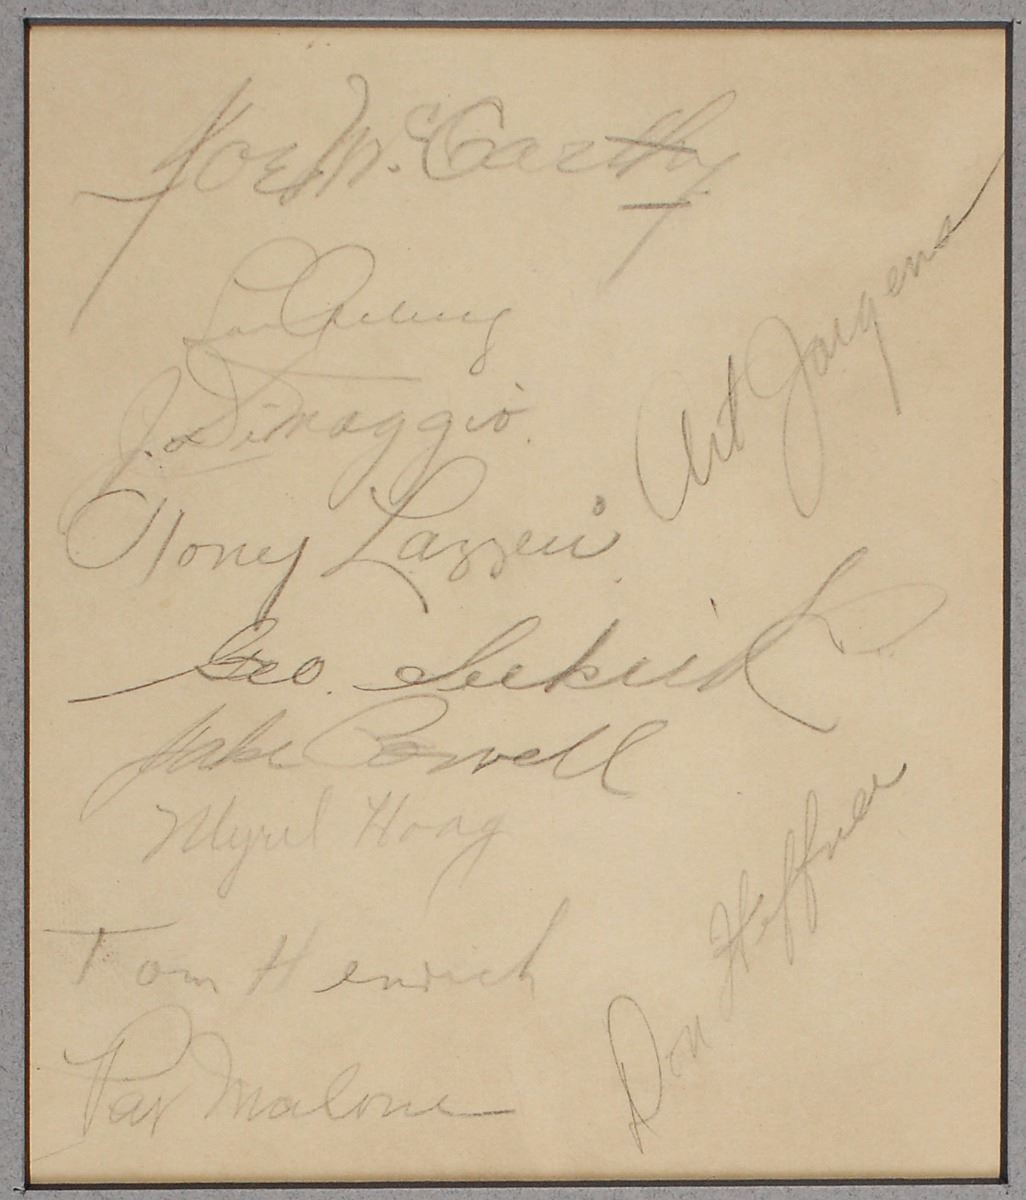 Joe McCarthy
Lou Gehrig
J. DiMaggio.
Tony Lazzeri
Geo. Selkirk
Jake Powell
Myril Hoag
Tom Henrich
Pat Malone
Art Jorgens
Don Heffner